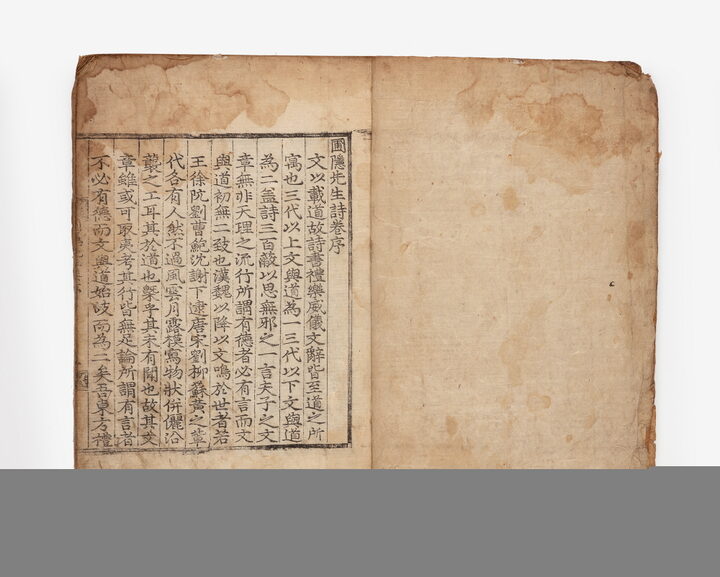 圃隱先生詩卷序
文以載道故詩書禮樂威儀文辭皆至道之所
寓也三代以上文與道為一三代以下文與道
為二盖詩三百蔽以思無邪之一言夫子之文
章無非天理之流行所謂有德者必有言而文
與道初無二致也漢魏以降以文鳴於世者若
王徐阮劉曹鮑沈謝下逮唐宋劉柳蘇黃之輩
代各有人然不過風雲月露模寫物狀併儷沿
襲之工耳其於道也槩乎其未有聞也故其文
章雖或可取夷考其行皆無足論所謂有言者
不必有德而文與道始歧而為二矣吾東方禮